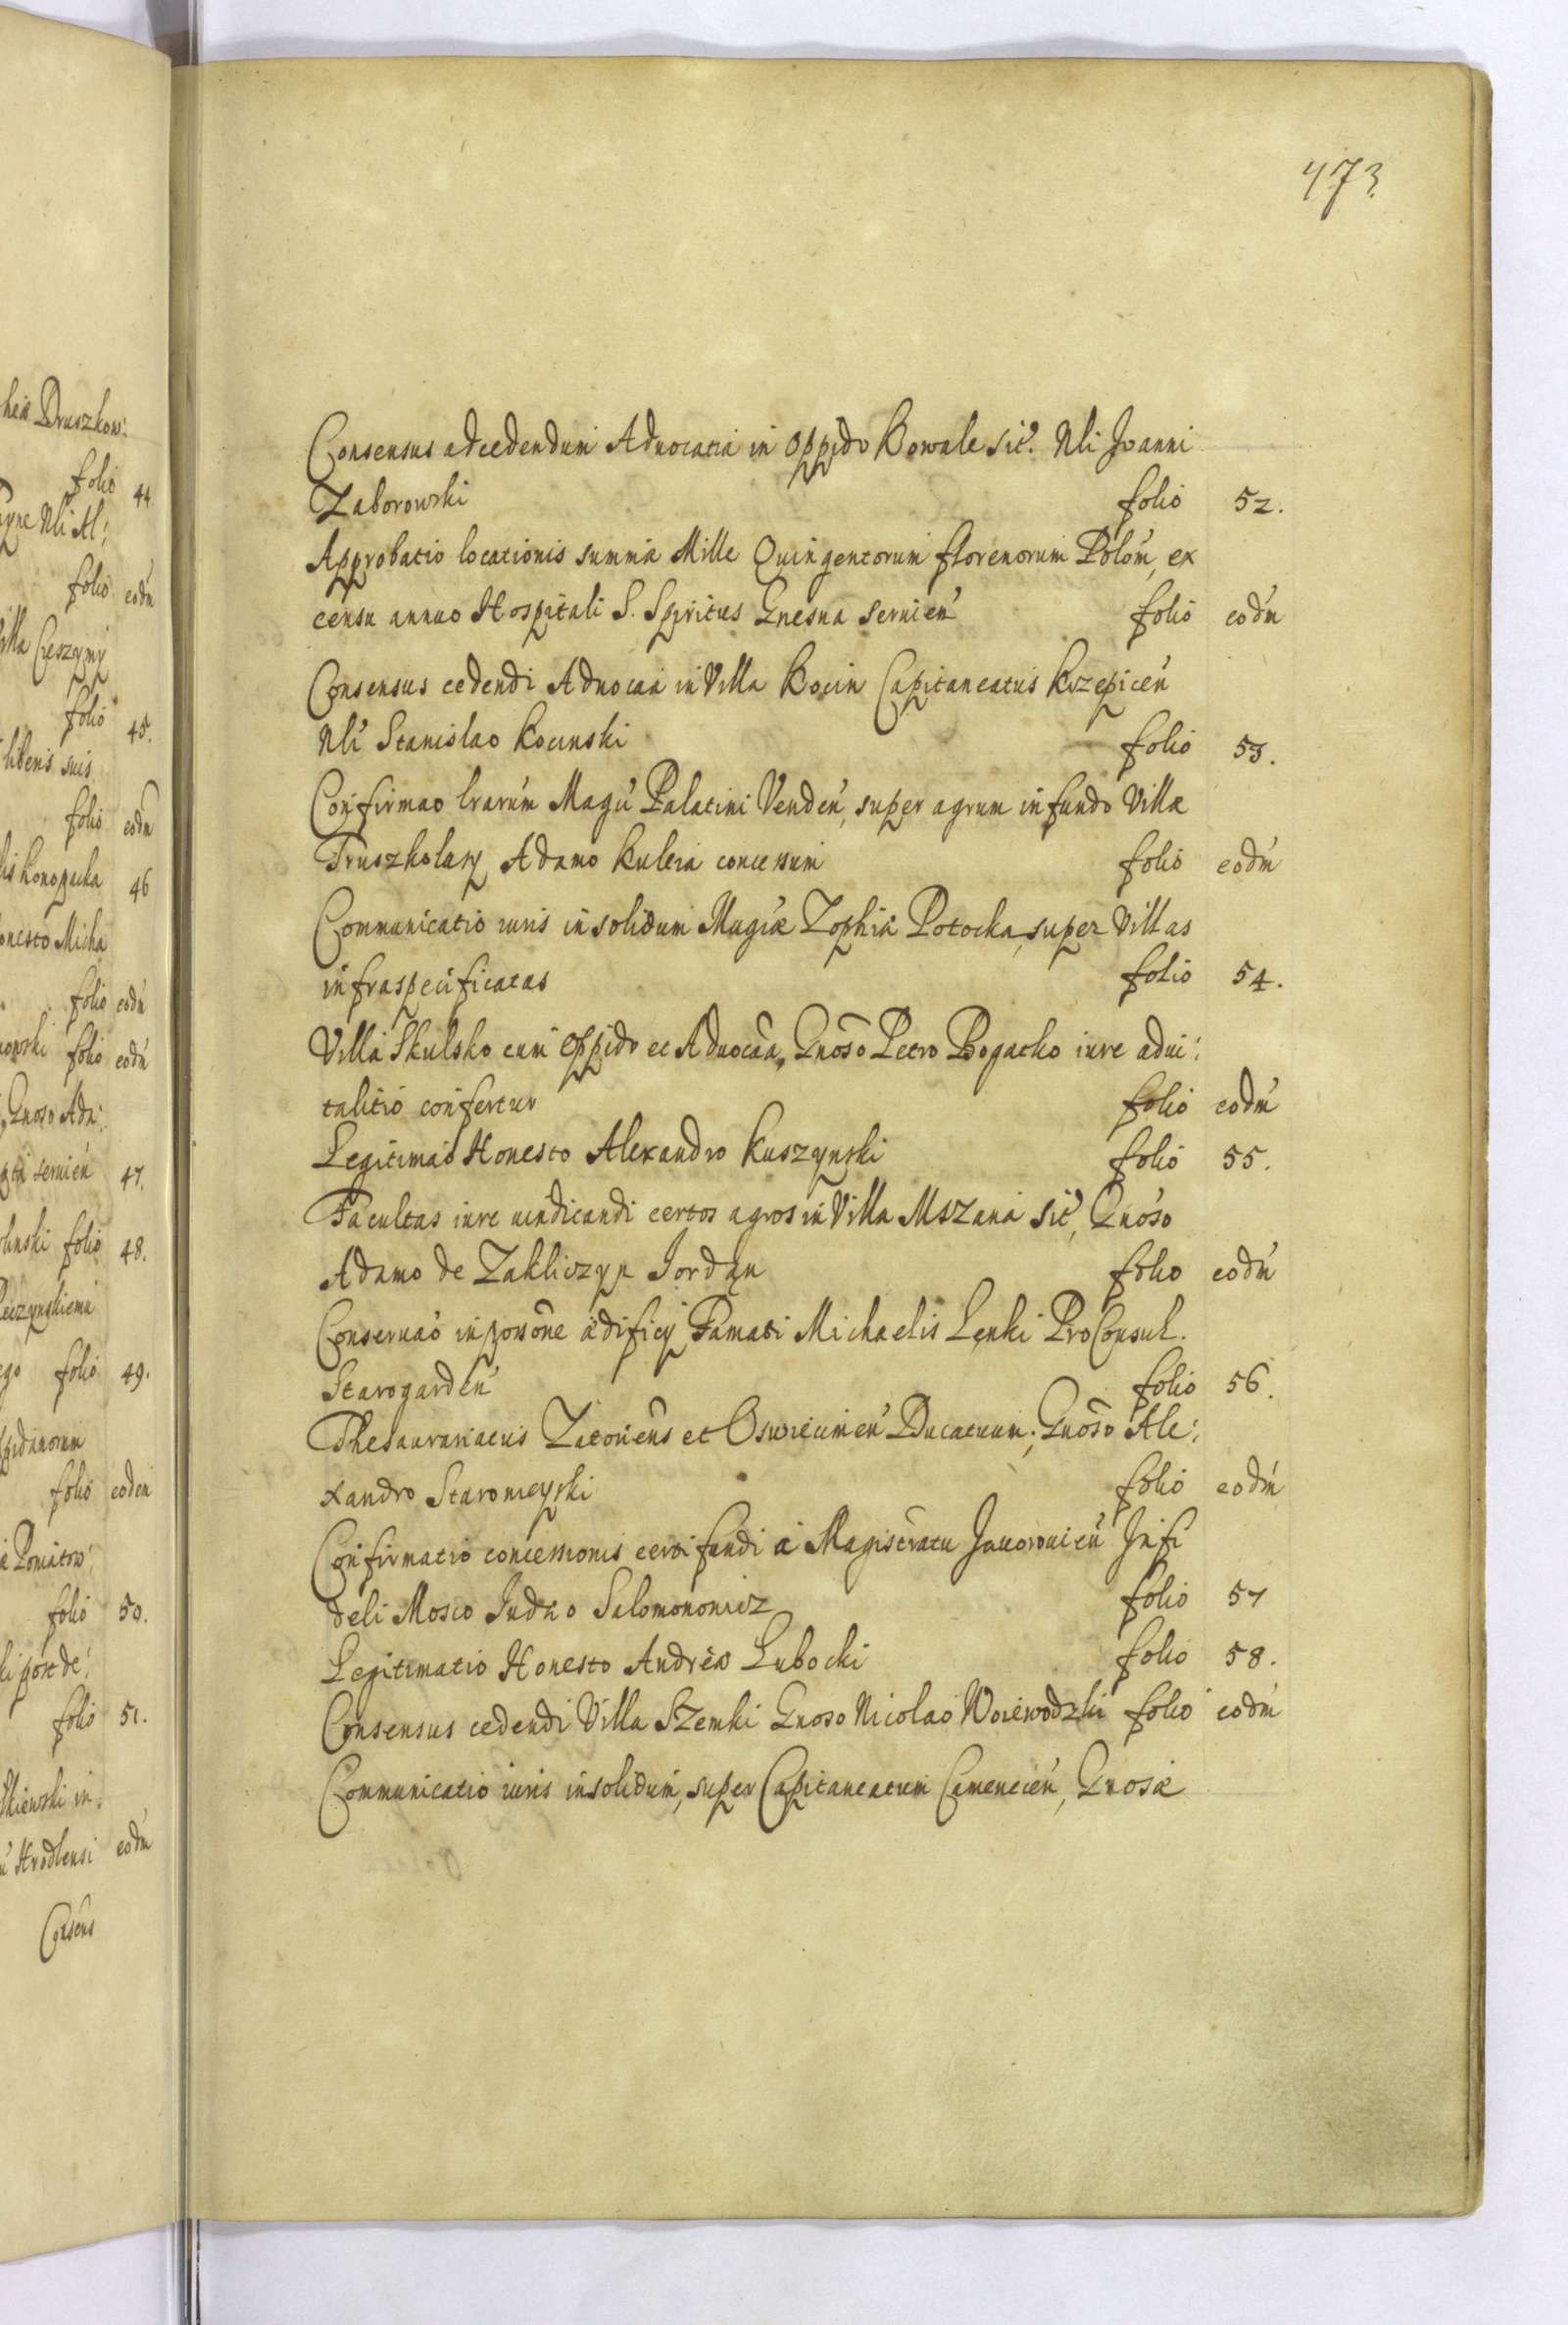 heæ Druszkow:
folio 44
Nli Al:
folio eodm̃
Villa Cieszymy
folio 45.
liberis suis
folio eodm̃
Konopacka 46
onesto Micha
folio eodm̃
folio eodm̃
Gnoso Ada:
seruień 47.
folio 48.
folio 49.
folio eodem
Poniatow:
folio 50.
post de:
folio 51.
in:
Hrodlensi eodm̃
Consens
473
Consensus ad cedendum Aduocatiã in Oppido Kowale sit̃. Nli Joanni
Zaborowski folio 52.
Approbatio locationis summæ Mille Quingentorum florenorum Polom̃, ex
censu annuo Hospitali S. Spiritus Gnesnæ seruień folio eodm̃
Consensus cedendi Aduocaã in Villa Kocin Capitaneatus Krzepiceń
Nli Stanislao Kocinski folio 53.
Confirmao lrarum̃ Magci Palatini Vendeń, super agrum in fundo Villæ
Truszkolasy Adamo Kulera concessum folio eodm̃
Communicatio iuris in solidum Magcæ Zophiæ Potocka, super Villas
infraspecificatas folio 54.
Villa Skulsko cum Oppido et Aduocaã, Gnoso Petro Bogacko iure adui:
talitio confertur folio eodm̃
Legitimaõ Honesto Alexandro Kuszynski folio 55.
Facultas iure uindicandi certos agros in Villa Mszana sit̃, Gnoso
Adamo de Zakliczyn Jordan folio eodm̃
Conseruaõ in possone ædificÿ Famati Michaelis Lenki ProConsul.
Starogardeń folio 56.
Thesaurariatus Zatoriens et Oswiecimeń Ducatuum, Gnoso Ale:
xandro Staromeyski folio eodm̃
Confirmatio concessionis certi fundi a Magistratu Jauorouień Infi
deli Mosco Judko Salomonowicz folio 57
Legitimatio Honesto Andreæ Lubocki folio 58.
Consensus cedendi Villa Szemki Gnoso Nicolao Woiewodzki folio eodm̃
Communicatio iuris in solidum, super Capitaneatum Camenecień, Gnosæ